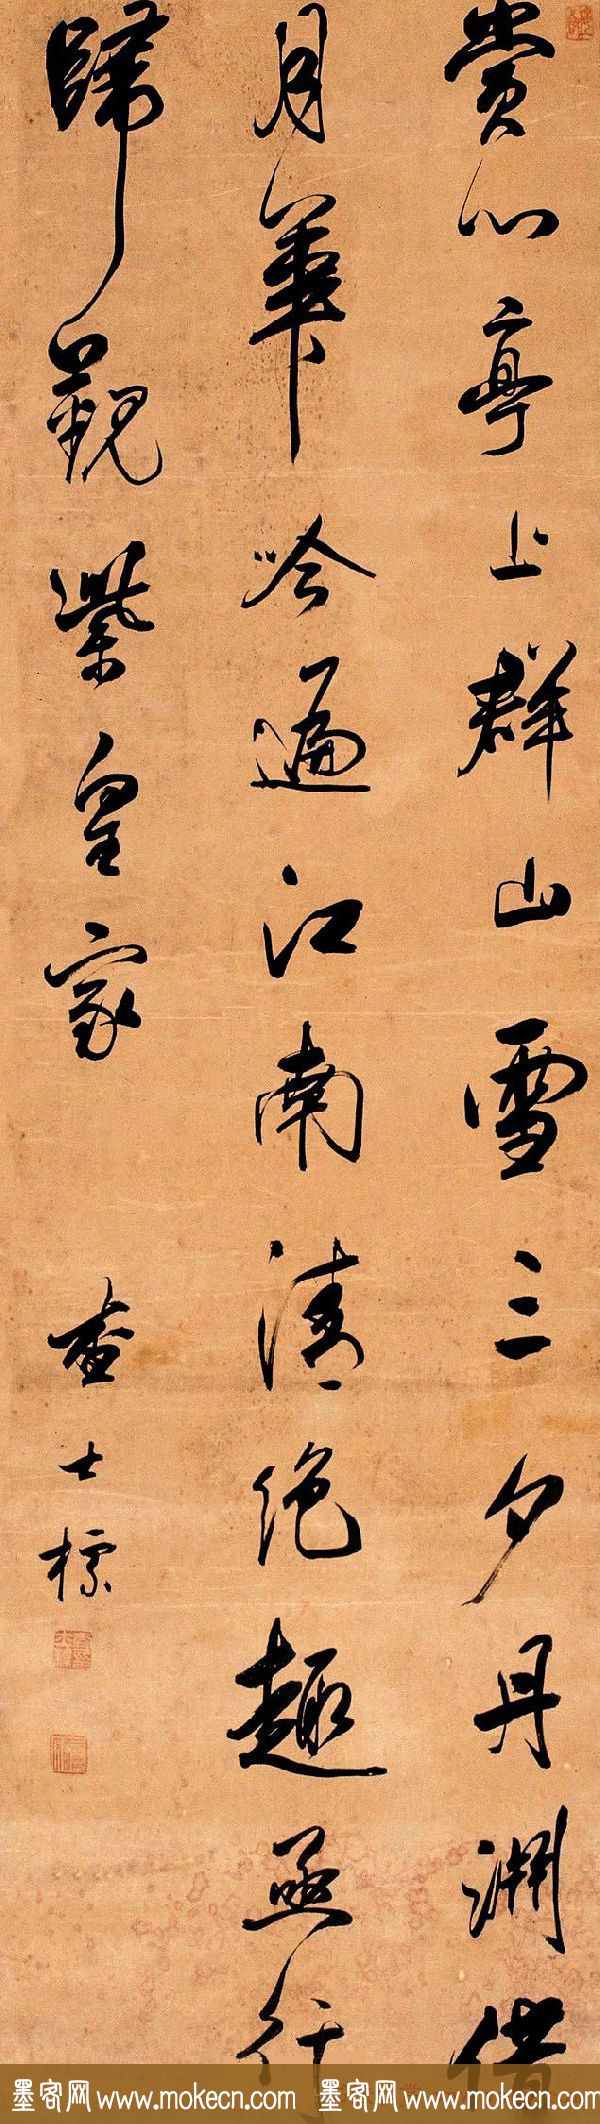 赏心亭上群山雪三夕丹渊借
月华吟遍江南清绝趣亟行
归觐紫皇家
查士标
墨客网 www.mokecn.com 墨客网 www.mokecn.com